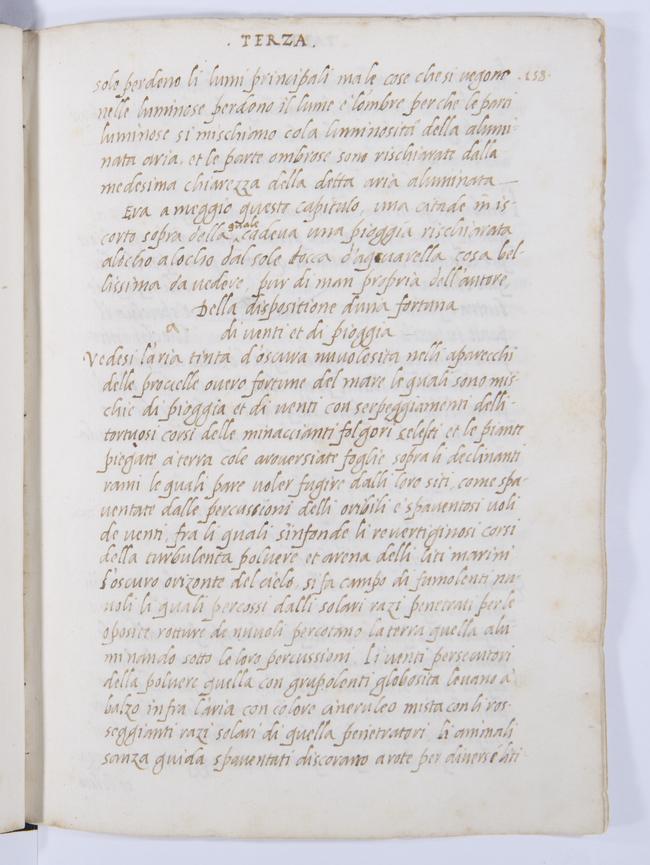 . TERZA .
solo perdeno li lumi principali ma le cose che si vegono .158.
nelle luminose perdono il lume e l'ombre perche le parti
luminose si mischiano cola luminosità della alumi-
nata aria, et le parte ombrose sono rischiarate dalla
medesima chiarezza della detta aria aluminata —
Era a meggio questo capitulo, una citade in is-
corto sopra della quale cadeva una pioggia rischiarata
alocho alocho dal sole tocca d'aquarella cosa bel-
lissima da vedere, pur di man propria dell'autore,
Della dispositione d'una fortuna
a di venti et di pioggia —
Vedesi l'aria tinta d'oscura nuvolosita nelli aparecchi
delle procelle overo fortune del mare le quali sono mis-
chie di pioggia et di venti con serpeggiamenti delli
tortuosi corsi delle minaccianti folgori celesti et le piante
piegate a terra cole aroversiate foglie sopra li declinanti
rami le quali pare voler fugire dalli lore siti, come spa-
ventate dalle percussioni delli oribili e spaventosi voli
de venti, fra li quali s'infonde li revertiginosi corsi
della turbulenta polvere et arena delli liti marini
l'oscuro orizonte del cielo, si fa campo di fumolenti nu-
voli li quali percossi dalli solari razi penetrati per le
oposite rotture de nuvoli percotano la terra quella alu
minando sotto le loro percussioni. Li venti persecutori
della polvere quella con grupolenti globosita levano a
balzo infra l'aria con colore cineruleo mista con li ros-
seggianti razi solari di quella penetratori. li animali
sanza guida spaventati discorano a rote per diverse liti